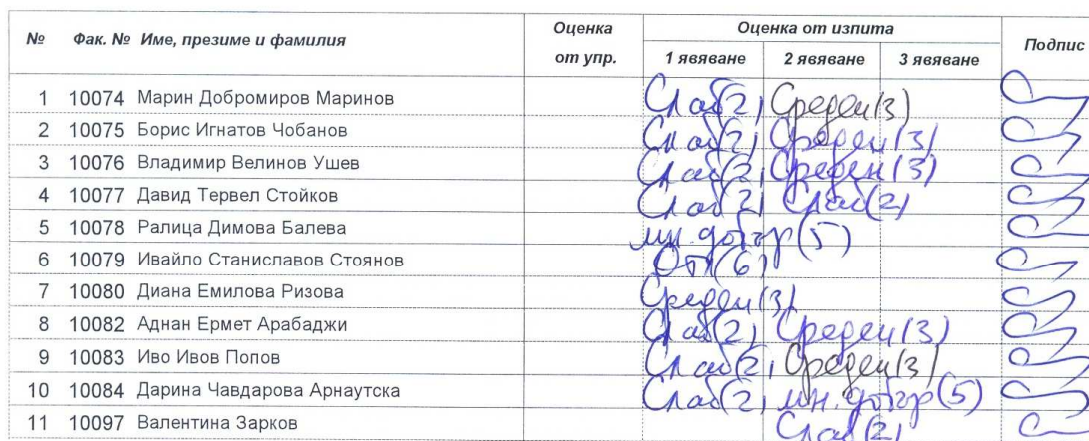 № Фак. № Име, презиме и фамилия Оценка от упр. Оценка от изпита Подпис
1 явяване 2 явяване 3 явяване
1 10074 Марин Добромиров Маринов Слаб(2) Среден(3)
2 10075 Борис Игнатов Чобанов Слаб(2) Среден(3)
3 10076 Владимир Велинов Ушев Слаб(2) Среден(3)
4 10077 Давид Тервел Стойков Слаб(2) Слаб(2)
5 10078 Ралица Димова Балева мн. добър(5)
6 10079 Ивайло Станиславов Стоянов Отл(6)
7 10080 Диана Емилова Ризова Среден(3)
8 10082 Аднан Ермет Арабаджи Слаб(2) Среден(3)
9 10083 Иво Ивов Попов Слаб(2) Среден(3)
10 10084 Дарина Чавдарова Арнаутска Слаб(2) мн. добър(5)
11 10097 Валентина Зарков Слаб(2)